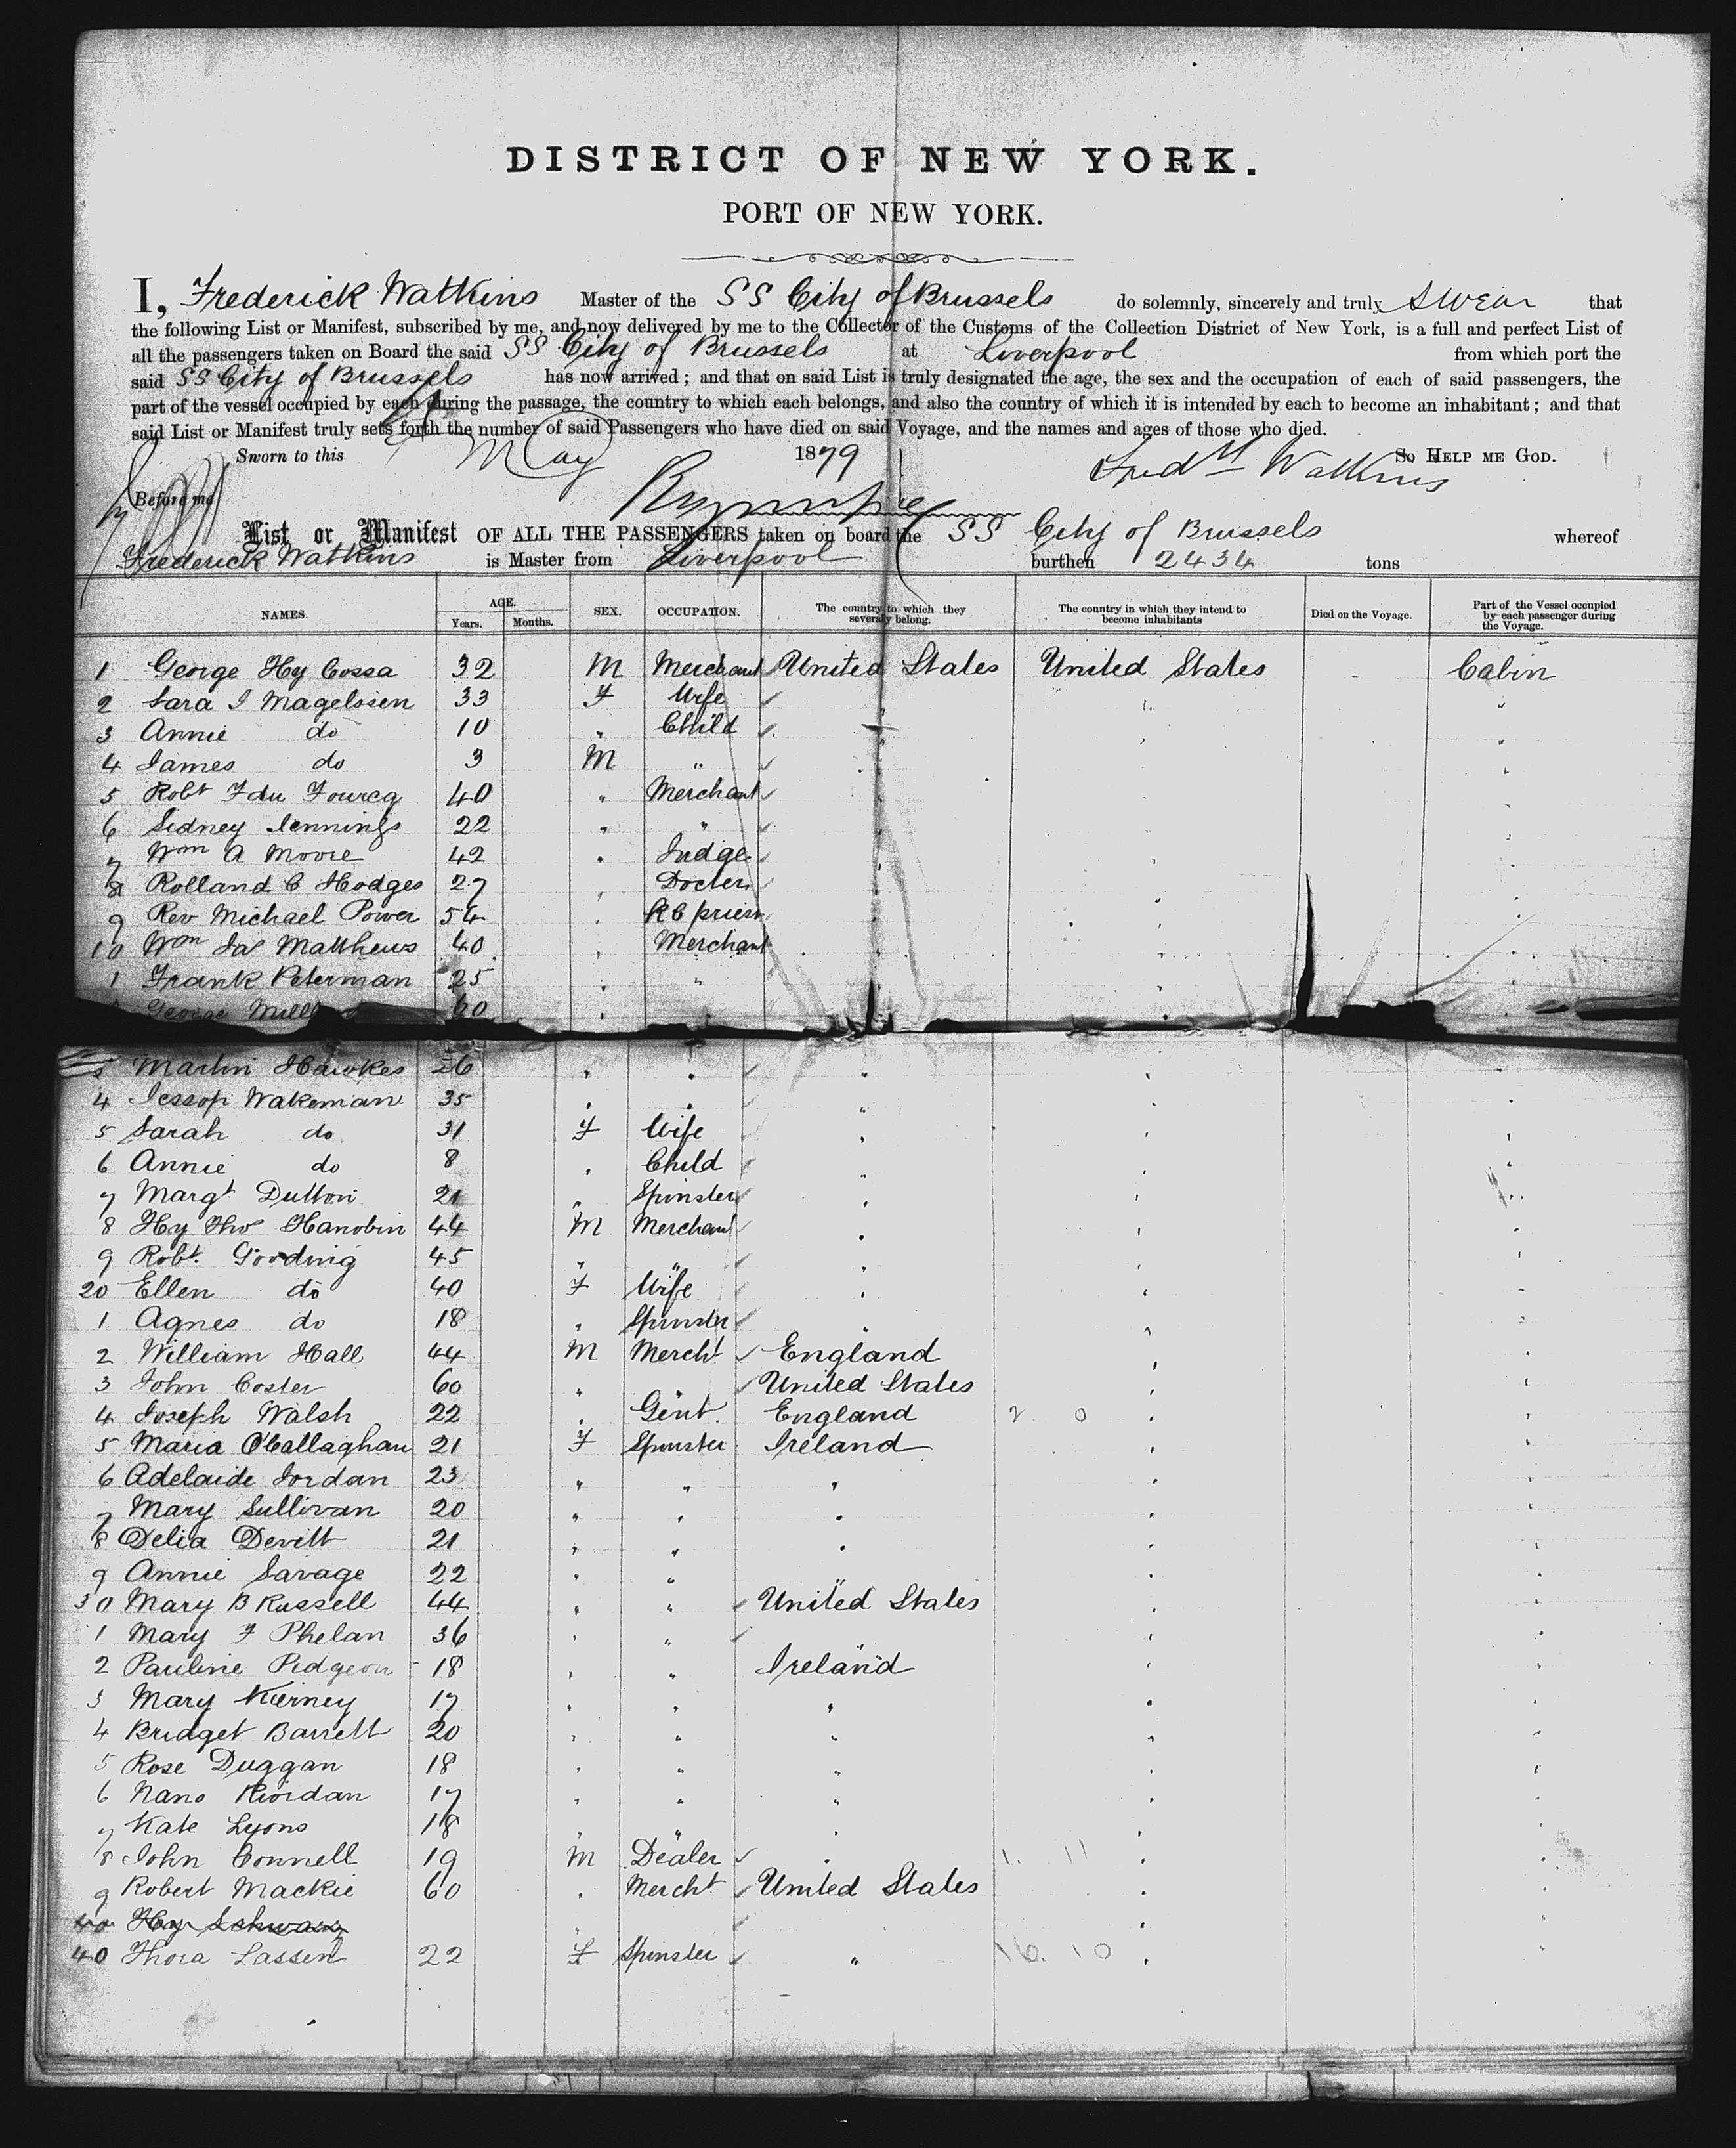 DISTRICT OF NEW YORK.
PORT OF NEW YORK.
I, Frederick Watkins Master of the SS City of Brussels do solemnly, sincerely and truly swear that
the following List or Manifest, subscribed by me, and now delivered by me to the Collector of the Customs of the Collection District of New York, is a full and perfect List of
all the passengers taken on Board the said SS City of Brussels at Liverpool from which port the
said SS City of Brussels has now arrived; and that on said List is truly designated the age, the sex and the occupation of each of said passengers, the
part of the vessel occupied by each during the passage, the country to which each belongs, and also the country of which it is intended by each to become an inhabitant; and that
said List or Manifest truly sets forth the number of said Passengers who have died on said Voyage, and the names and ages of those who died.
Sworn to this May 1879 So HELP ME GOD.
Fredk Watkins
Before me
List or Manifest OF ALL THE PASSENGERS taken on board the SS City of Brussels whereof
Frederick Watkins is Master from Liverpool burthen 2434 tons
NAMES. AGE. Years. Months. SEX. OCCUPATION. The country to which they severaly belong. The country in which they intend to become inhabitants Died on the Voyage. Part of the Vessel occupied by each passenger during the Voyage.
1 George Hy Cossa 32 M Merchant United States United States - Cabin
2 Sara I Magelssen 33 F Wife " "
3 Annie do 10 " Child " "
4 James do 3 M " " "
5 Robt F du Fourcq 40 " Merchant
6 Sidney Jennings 22 " "
7 Wm A Moore 42 " Judge
8 Rolland C Hodges 27 " Docter
9 Rev Michael Power 54 " RC priest
10 Wm Jas Matthews 40 " Merchant
1 Frank Peterman 25 " "
George Mill 60 "
3 Martin Hawkes 26 " " "
4 Jessop Wakeman 35 " " "
5 Sarah do 31 F Wife "
6 Annie do 8 " Child "
7 Margt Dutton 21 " Spinster "
8 Hy Thos Hanobin 44 M Merchant "
9 Robt. Gooding 45 " " "
20 Ellen do 40 F Wife "
1 Agnes do 18 " Spinster "
2 William Hall 44 M Mercht England "
3 John Coster 60 " " United States "
4 Joseph Walsh 22 " Gent. England 2 0 "
5 Maria O'Callaghan 21 F Spinster Ireland "
6 Adelaide Jordan 23 " " " "
7 Mary Sullivan 20 " " " "
8 Delia Devitt 21 " " " "
9 Annie Savage 22 " " " "
30 Mary B Russell 44 " " United States "
1 Mary F Phelan 36 " " " "
2 Pauline Pidgeon 18 " " Ireland "
3 Mary Kierney 17 " " " "
4 Bridget Barrett 20 " " " "
5 Rose Duggan 18 " " " "
6 Nano Riordan 17 " " " "
7 Kate Lyons 18 " " " "
8 John Connell 19 M Dealer " 1. 11 "
9 Robert Mackie 60 " Mercht United States "
40 Hy Schwarz " "
40 Thora Lassen 22 F Spinster " 16. 10 "